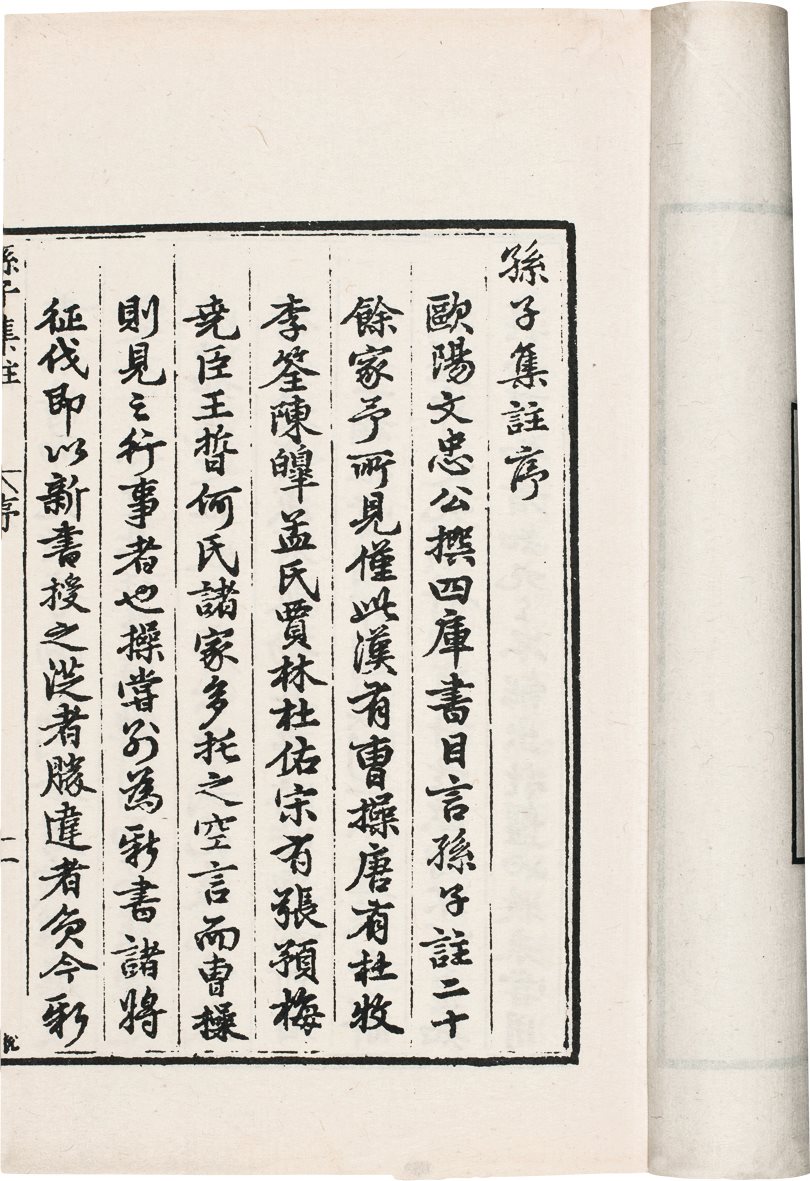 孫子集註序
歐陽文忠公撰四庫書目言孫子註二十
餘家予所見僅此漢有曹操唐有杜牧
李筌陳皥孟氏賈林杜佑宋有張預梅
堯臣王晳何氏諸家多托之空言而曹操
則見之行事者也操嘗別為新書諸將
征伐即以新書授之從者勝違者負今新
孫子集註
序
二